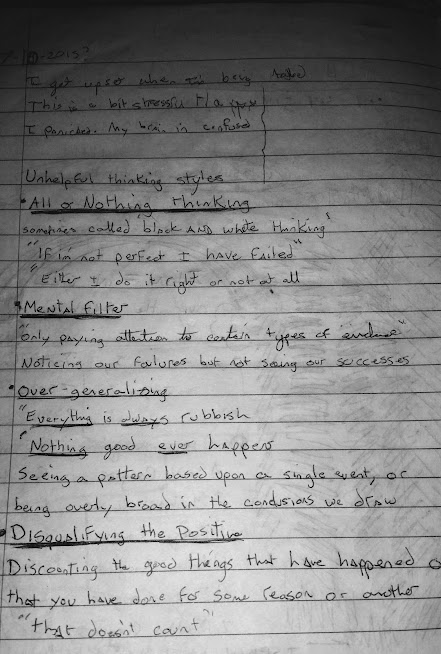 -2015?
I get upset when I'm being
This is a bit stressful
I panicked. My brain is confused
Unhelpful thinking styles
• All or Nothing thinking
sometimes called 'black AND white thinking'
"If im not perfect I have failed"
"Either I do it right or not at all
• Mental Filter
"only paying attention to certain types of evidence"
Noticing our failures but not seeing our successes
• Over-generalising
"Everything is always rubbish
"Nothing good ever happens
Seeing a pattern based upon a single event, or
being overly broad in the conclusions we draw
• Disqualifying the Positive
Discounting the good things that have happened o
that you have done for some reason or another
"that doesn't count"